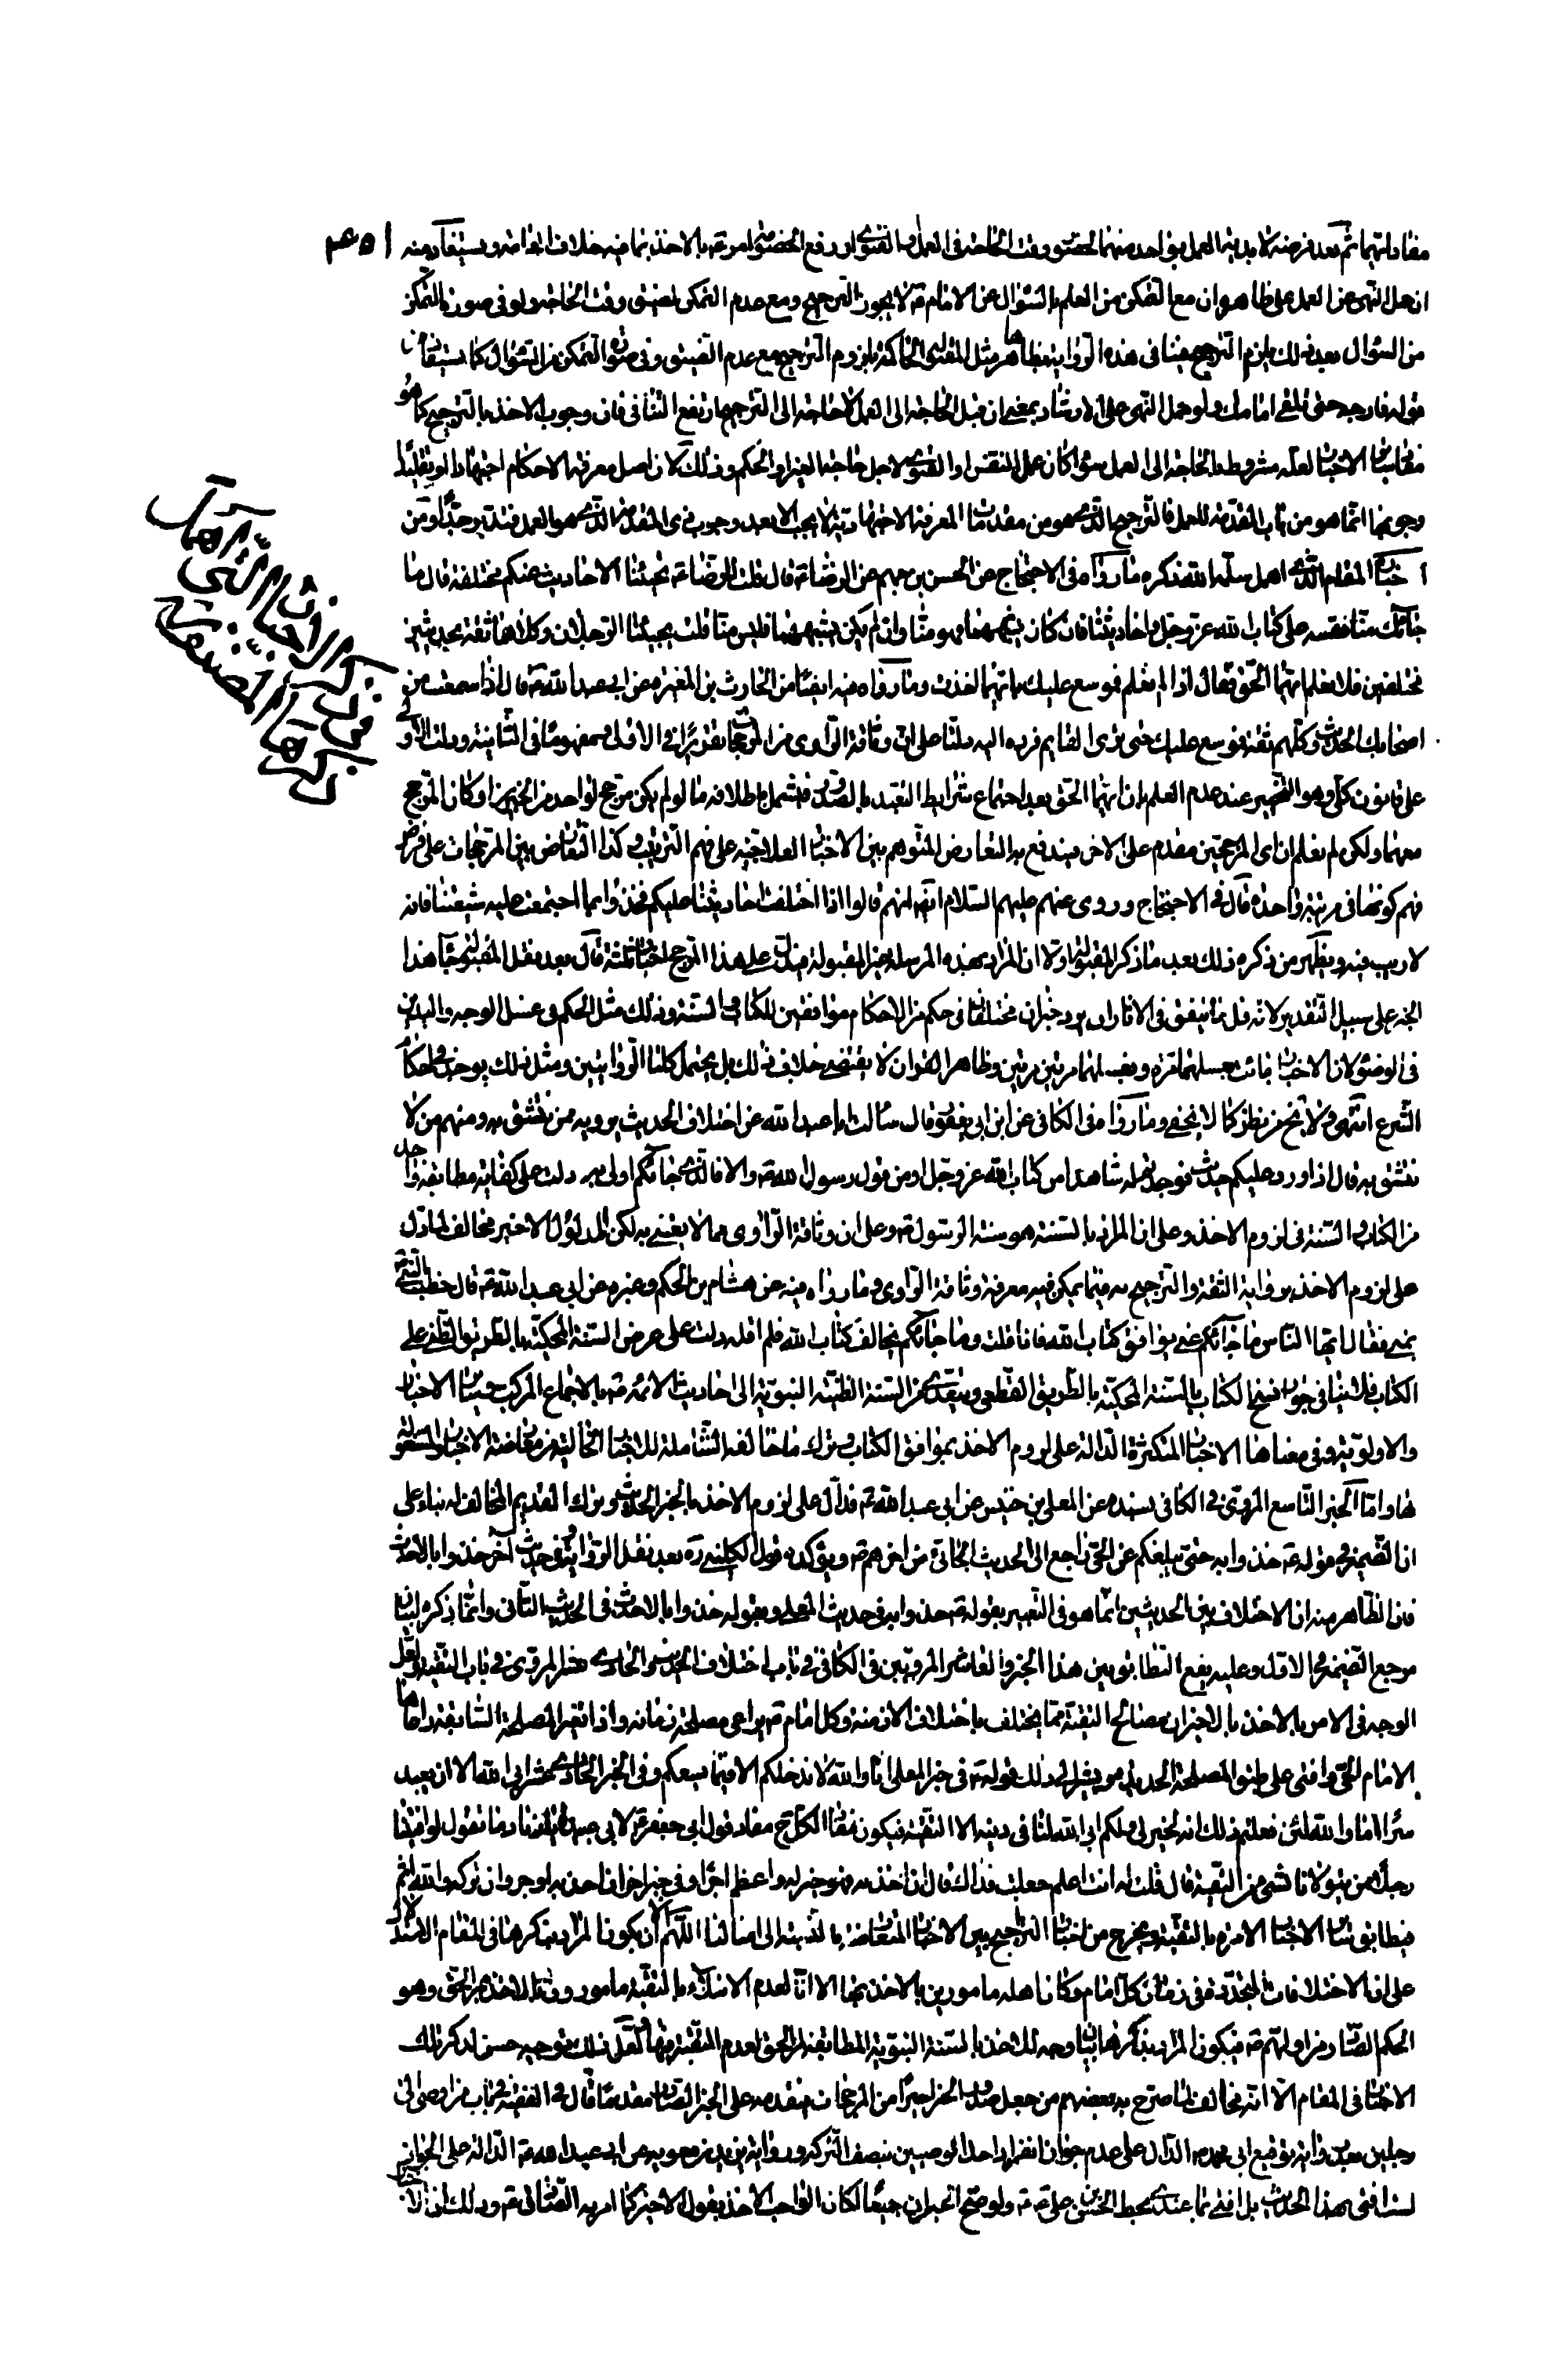 مفاداتهما ثم بعد فرضه لا بدية العمل بواحد منهما لضيق وقت الحاجة فى العمل والفتوى او رفع الخصومة امر ع بالاخذ بما فيه خلاف العامة ويستفاد منه ٢٤٥
ان هل النهى عن العمل على ظاهره وان مع التمكن من العلم بالسؤال عن الامام ع لا يجوز الترجيح ومع عدم التمكن لضيق وقت الحاجة ولو فى صورة التمكن
من السؤال بعد ذلك يلزم الترجيح فينافى هذه الرواية بظاهرها مثل المقبولة الحاكمة بلزوم الترجيح مع عدم الضيق وفى صورة التمكن من السؤال كما يستفاد من
قوله فارجه حتى تلقى امامك ولو حمل النهى على الارشاد بمعنى ان قبل الحاجة الى العمل لا حاجة الى الترجيح ارتفع التنافى فان وجوب الاخذ بالترجيح كما هو
مفاد سائر الاخبار لعله مشروط بالحاجة الى العمل سواء كان عمل النفس او الفتوى لاجل حاجة الغير او الحكم وذلك لان اصل معرفة الاحكام اجتهادا او تقليدا
وجوبها انما هو من باب المقدمة للعمل فالترجيح الذى هو من مقدمات المعرفة الاجتهادية لا يجب الا بعد وجوب ذى المقدمة الذى هو العمل فتدبر جدا ومن
اخبار المقام الذى اهمل سلمه الله ذكره ما رواه فى الاحتجاج عن الحسن بن جهم عن الرضا ع قال قلت للرضا ع تجيئنا الاحاديث عنكم مختلفة قال ما
جاءك عنا فقسه على كتاب الله عز وجل واحاديثنا فان كان يشبههما فهو منا وان لم يكن يشبههما فليس منا قلت يجيئنا الرجلان وكلاهما ثقة بحديثين
مختلفين فلا نعلم ايهما الحق فقال اذا لم تعلم فموسع عليك بايهما اخذت وما رواه فيه ايضا من الحارث بن المغيرة عن ابى عبد الله ع قال اذا سمعت من
اصحابك الحديث وكلهم ثقة فموسع عليك حتى ترى القائم فرده اليه دلتا على ان وثاقة الراوى من المرجحات تقريرا فى الاولى ومفهوما فى الثانية ودلت الاولى
على قانون كلى وهو التخيير عند عدم العلم بان ايهما الحق بعد اجتماع شرائط التعبد بالصدور فيشمل باطلاقه ما لو لم يكن مرجح لواحد من الخبرين او كان المرجح
معهما ولكن لم نعلم ان اى المرجحين مقدم على الاخر فيندفع به التعارض المتوهم بين الاخبار العلاجية على فهم الترتيب وكذا التعارض بين المرجحات على فرض
فهم كونها فى مرتبة واحدة قال فى الاحتجاج وروى عنهم عليهم السلام ايضا انهم قالوا اذا اختلفت احاديثنا عليكم فخذوا بما اجتمعت عليه شيعتنا فانه
لا ريب فيه ويظهر من ذكره ذلك بعد ما ذكر المقبولة اولا ان المراد بهذه المرسلة غير المقبولة فيدل على هذا المرجح اخبار ثلثة قال بعد نقل المقبولة جاء هذا
الخبر على سبيل التقدير لانه قل ما يتفق فى الاثار ان يرد خبران مختلفان فى حكم من الاحكام موافقين للكتاب والسنة وذلك مثل الحكم فى غسل الوجه واليدين
فى الوضوء لان الاخبار جائت بغسلهما مرة وبغسلهما مرتين مرتين وظاهر القران لا يقتضى خلاف ذلك بل يحتمل كلتا الروايتين ومثل ذلك يوجد فى احكام
الشرع انتهى ولا يخ من نظر كما لا يخفى وما رواه فى الكافى عن ابن ابى يعفور قال سئلت ابا عبد الله عن اختلاف الحديث يرويه من نثق به ومنهم من لا
نثق به قال اذا ورد عليكم حديث فوجدتم له شاهدا من كتاب الله عز وجل او من قول رسول الله ص والا فالذى جائكم اولى به دلت على كفاية مطابقة واحد
من الكتاب والسنة فى لزوم الاخذ وعلى ان المراد بالسنة هو سنة الرسول ص وعلى ان وثاقة الراوى مما لا يعتنى به لكن المدلول الاخير مخالف لما دل
على لزوم الاخذ برواية الثقة والترجيح به فيما يمكن فيه معرفة وثاقة الراوى وما رواه فيه عن هشام بن الحكم وغيره عن ابى عبد الله ع قال خطب النبى ص
بمنى فقال ايها الناس ما جائكم عنى يوافق كتاب الله فانا قلته وما جائكم يخالف كتاب الله فلم اقله دلت على عرض السنة المحكية بالطريق الظنى على
الكتاب فلا ينافى جواز نسخ الكتاب بالسنة المحكية بالطريق القطعى ويتعدى عن السنة الظنية النبوية الى احاديث الائمة ع بالاجماع المركب وسائر الاخبار
والاولوية وفى معناها الاخبار المتكثرة الدالة على لزوم الاخذ بموافق الكتاب وترك ما خالفه الشاملة للاخبار الخالية من معارضة الاخبار والمسموقة
لها واما الخبر التاسع المروى فى الكافى بسنده عن المعلى بن خنيس عن ابى عبد الله ع فدال على لزوم الاخذ بالخبر الحديث وترك القديم المخالف له بناء على
ان الضمير فى قوله ع خذوا به حتى يبلغكم عن الحى راجع الى الحديث الجائى من اخرهم ع ويؤكده قول الكلينى ره بعد نقل الرواية وفى حديث آخر خذوا بالاحدث
فان الظاهر منه ان الاختلاف بين الحديثين انما هو فى التعبير بقوله ع خذوا به فى حديث المعلى وبقوله خذوا بالاحدث فى الحديث الثانى وانما ذكره لبيان
مرجع الضمير فى الاول وعليه يقع التطابق بين هذا الخبر والعاشر المرويين فى الكافى فى باب اختلاف الحديث والحادى عشر المروى فى باب التقية ولعل
الوجه فى الامر بالاخذ بالاخير ان مصالح التقية مما يختلف باختلاف الازمنة وكل امام ع يراعى مصلحة زمانه واذا تغير المصلحة السابقة راعاها
الامام الحى وافتى على طبق المصلحة الجديدة ويشير الى ذلك قوله ع فى خبر المعلى انا والله لا ندخلكم الا فيما يسعكم وفى الخبر الحادى عشر ابى الله الا ان يعبد
سرا اما والله لئن فعلتم ذلك انه لخير لى ولكم ابى الله لنا فى دينه الا التقية فيكون مفاد الكل ح مفاد قول ابى جعفر ع لابى عبيدة يا زياد ما تقول لو افتينا
رجلا ممن يتولانا بشئ من التقية قال قلت له انت اعلم جعلت فداك قال ان اخذ به فهو خير له واعظم اجرا وفى خبر اخر ان اخذ به اوجر وان تركه والله اثم
فيطابق سائر الاخبار الامرة بالتقية ويخرج من اخبار الترجيح بين الاخبار المتعارضة بالنسبة الى امثالنا اللهم الا ان يكون المراد بذكرها فى المقام الاستدلال
على ان الاختلافات المتجددة فى زمان كل امام وكان اهله مامورين بالاخذ بها الا انا لعدم الابتلاء بالتقية مامورون بالاخذ بمر الحق وهو
الحكم الصادر من اولهم ع فيكون المراد بذكرها بيان وجه للاخذ بالسنة النبوية المطابقة لمر الحق لعدم التقية فيها ولعل ذلك توجيه حسن لذكر تلك
الاخبار فى المقام الا انه مخالف لما صرح به بعضهم من جعل صدور الخبر اخيرا من المرجحات فيقدمه على الخبر الصادر مقدما قال فى الفقيه فى باب من اوصى الى
رجلين بعد رواية توقيع ابى محمد ع الدال على عدم جواز انفراد احد الوصيين بنصف التركة ورواية بريد بن معوية عن ابى عبد الله ع الدالة على الجواز
لست افتى بهذا الحديث بل افتى بما عندى بخط الحسن بن على ع ولو صح الخبران جميعا لكان الواجب الاخذ بقول الاخير كما امر به الصادق ع وذلك ان الاخبار
فى ذكر الاخبار التى اهمل
ذكرها المصنف